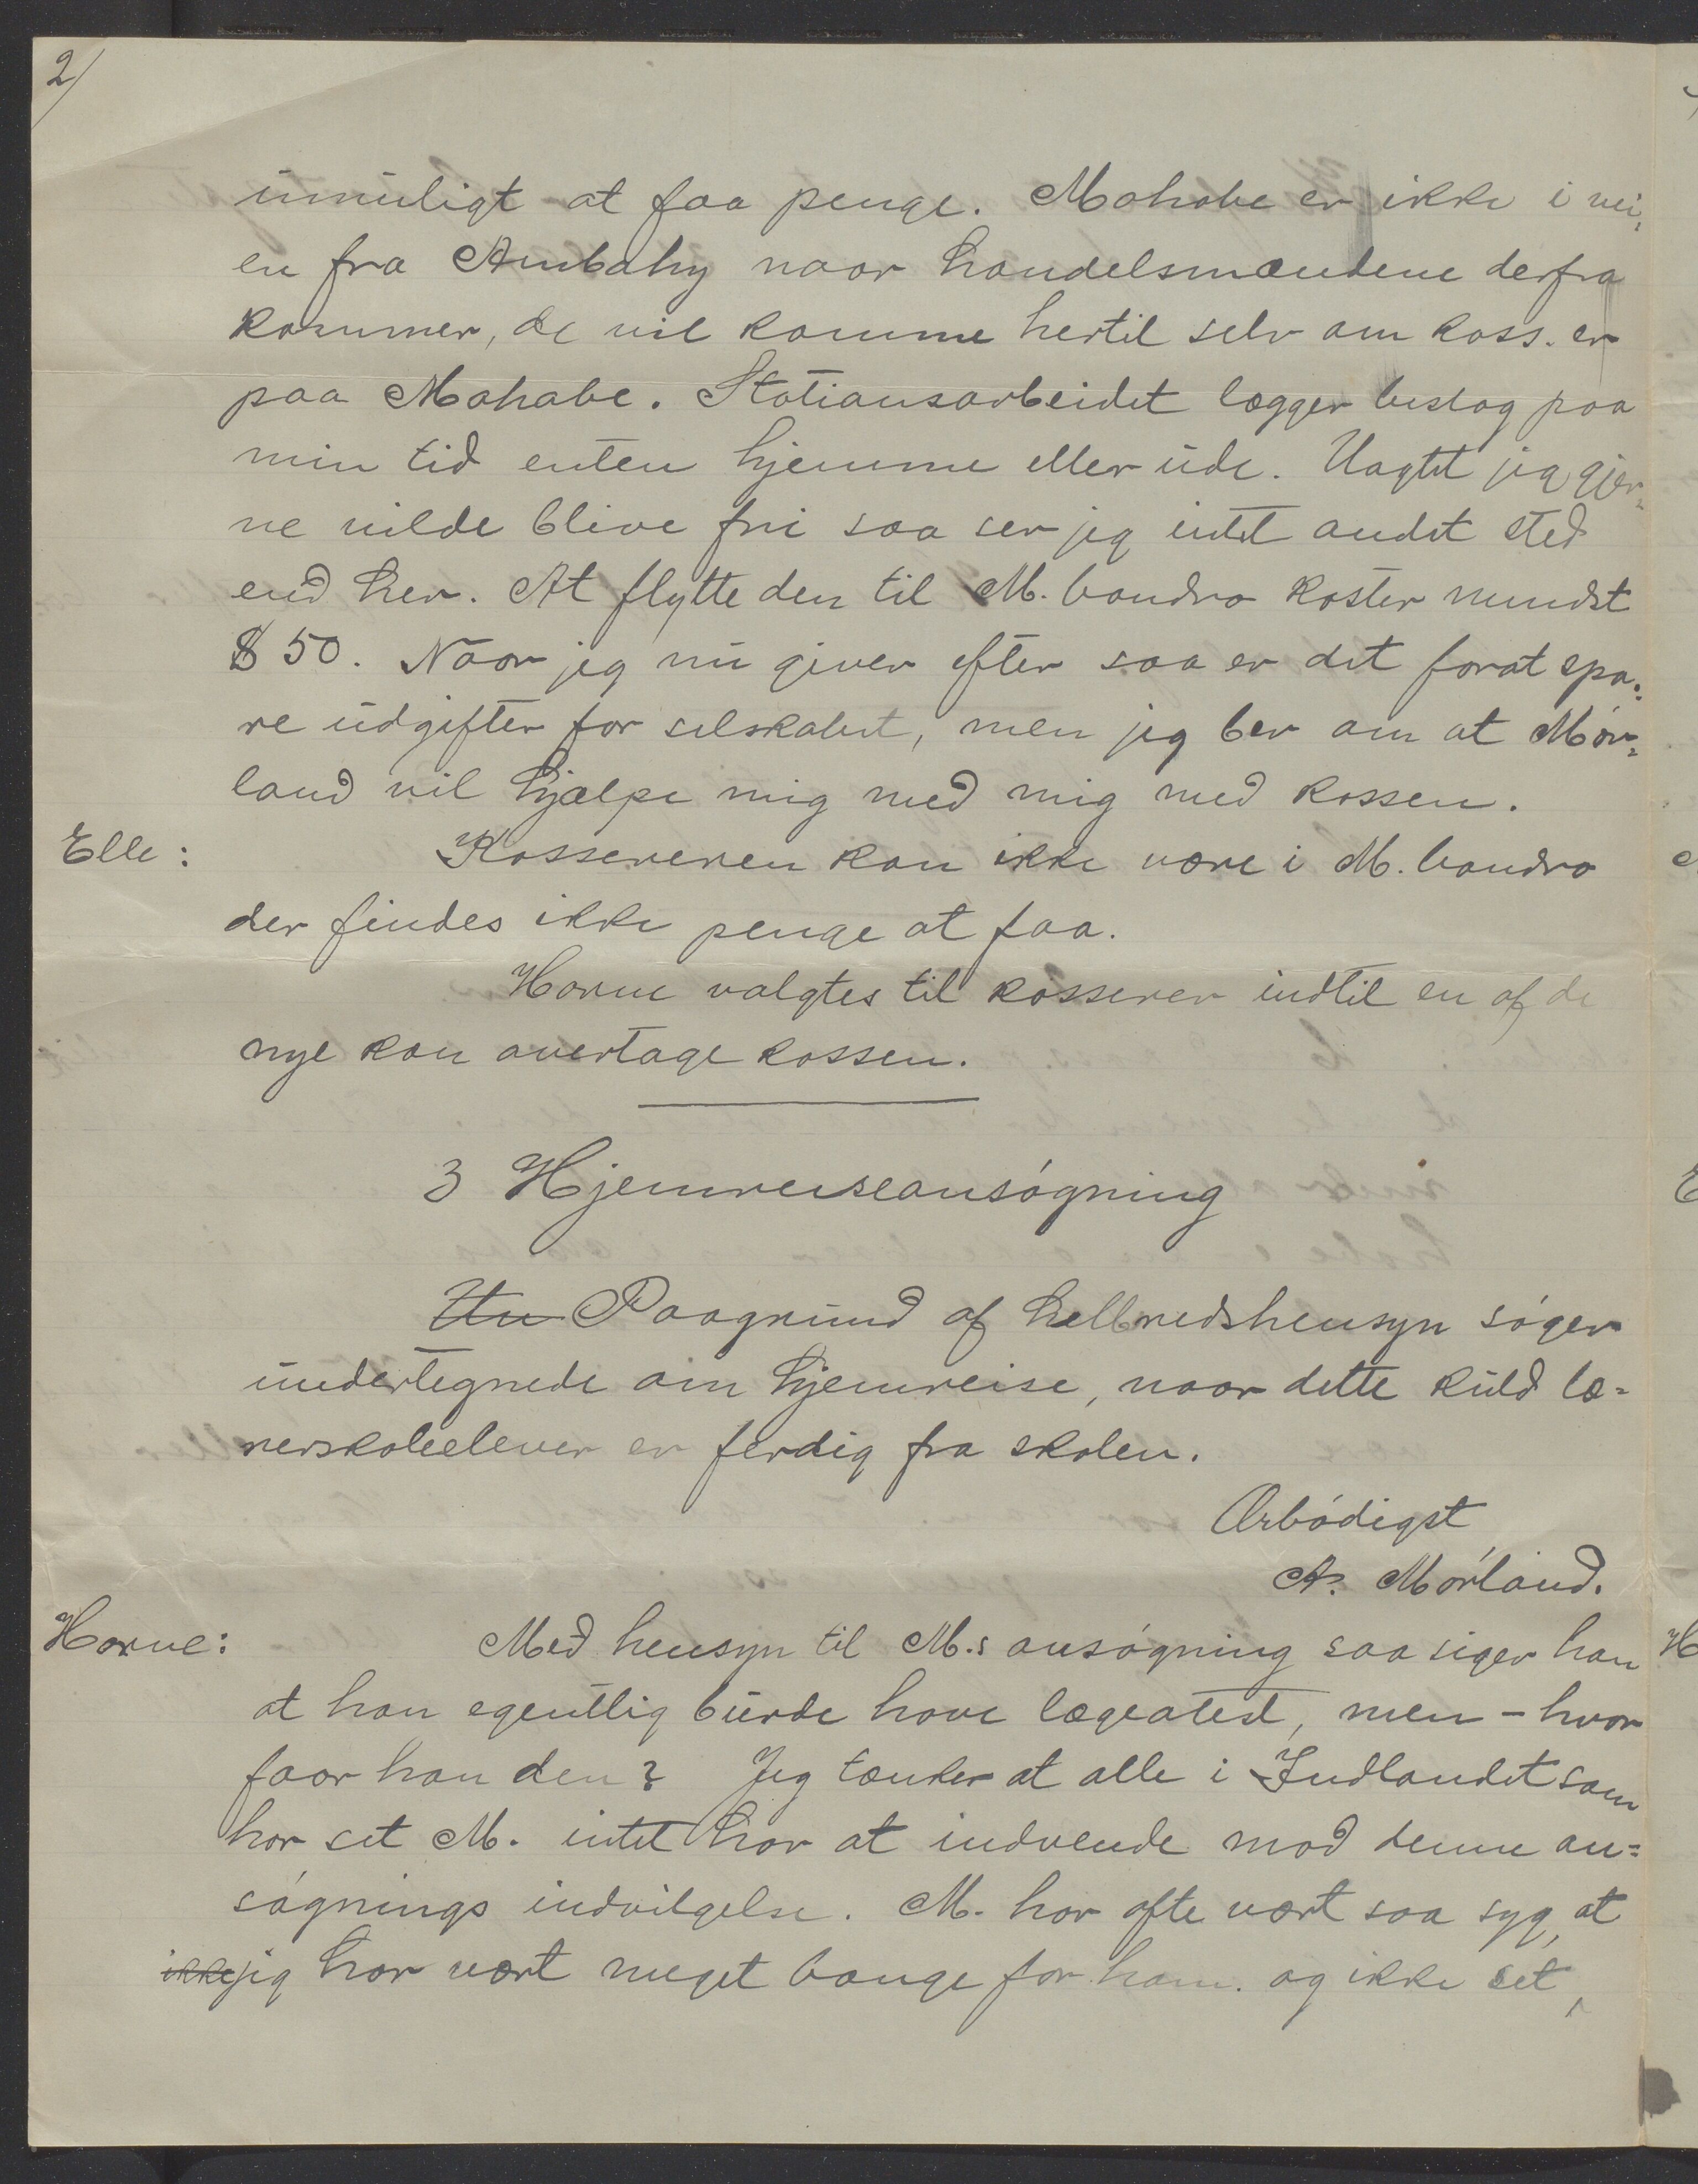 2/
umuligt at faa penge. Mahabe er ikke i vei,
en fra Ambahy naar handelsmændene derfra
kommer, de vil komme hertil selv om kass. er
paa Mahabe. Stationsarbeidet lægger beslag paa
min tid enten hjemme eller ude. Uagtet jeg gjer=
ne vilde blive fri saa ser jeg intet andet sted
end her. At flytte den til M. bondro koster mindst
$ 50. Naar jeg nu giver efter saa er det forat spa=
re udgifter for selskabet, men jeg ber om at Mør=
land vil hjælpe mig med mig med kassen.
Elle: Kassereren kan ikke være i M. bondro
der findes ikke penge at faa.
Horne valgtes til kasserer indtil en af de
nye kan overtage kassen.
3 Hjemreiseansøgning
Un Paagrund af helbredshensyn søger
undertegnede om hjemreise, naar dette kuld læ=
rerskoleelever er ferdig fra skolen.
Ærbødigst
A. Mørland.
Horne: Med hensyn til M.s ansøgning saa siger han
at han egentlig burde have lægeatest, men - hvor
faar han den? Jeg tænker at alle i Indlandet som
har set M. intet har at indvende mod denne an=
søgnings indvilgelse. M. har ofte vært saa syg, at
ikke jeg har vært meget bange for ham. og ikke set,